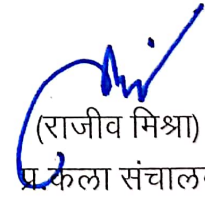 (राजीव मिश्रा)
प्र.कला संचालक